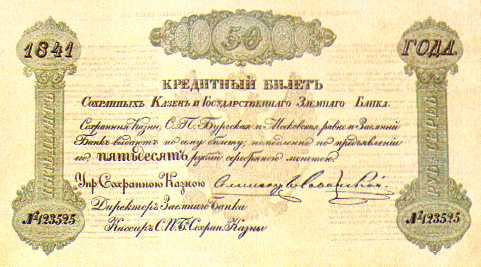 1841
50
ГОДА.
КРЕДИТНЫЙ БИЛЕТЪ
СОХРАННЫХЪ КАЗЕНЪ И ГОСУДАРСТВЕННАГО ЗАЕМНАГО БАНКА.
Сохранная Казна, С.П.Бургская и Московская равно и Заемный
Банкъ выдаютъ по сему билету, немедленно по предъявленіи
ПЯТЬДЕСЯТЪ рублей серебряною монетою.
Упр. Сохранною Казною
Директоръ Заемнаго Банка
Кассиръ С.П.Б. Сохран. Казны
№ 123525
№ 123525